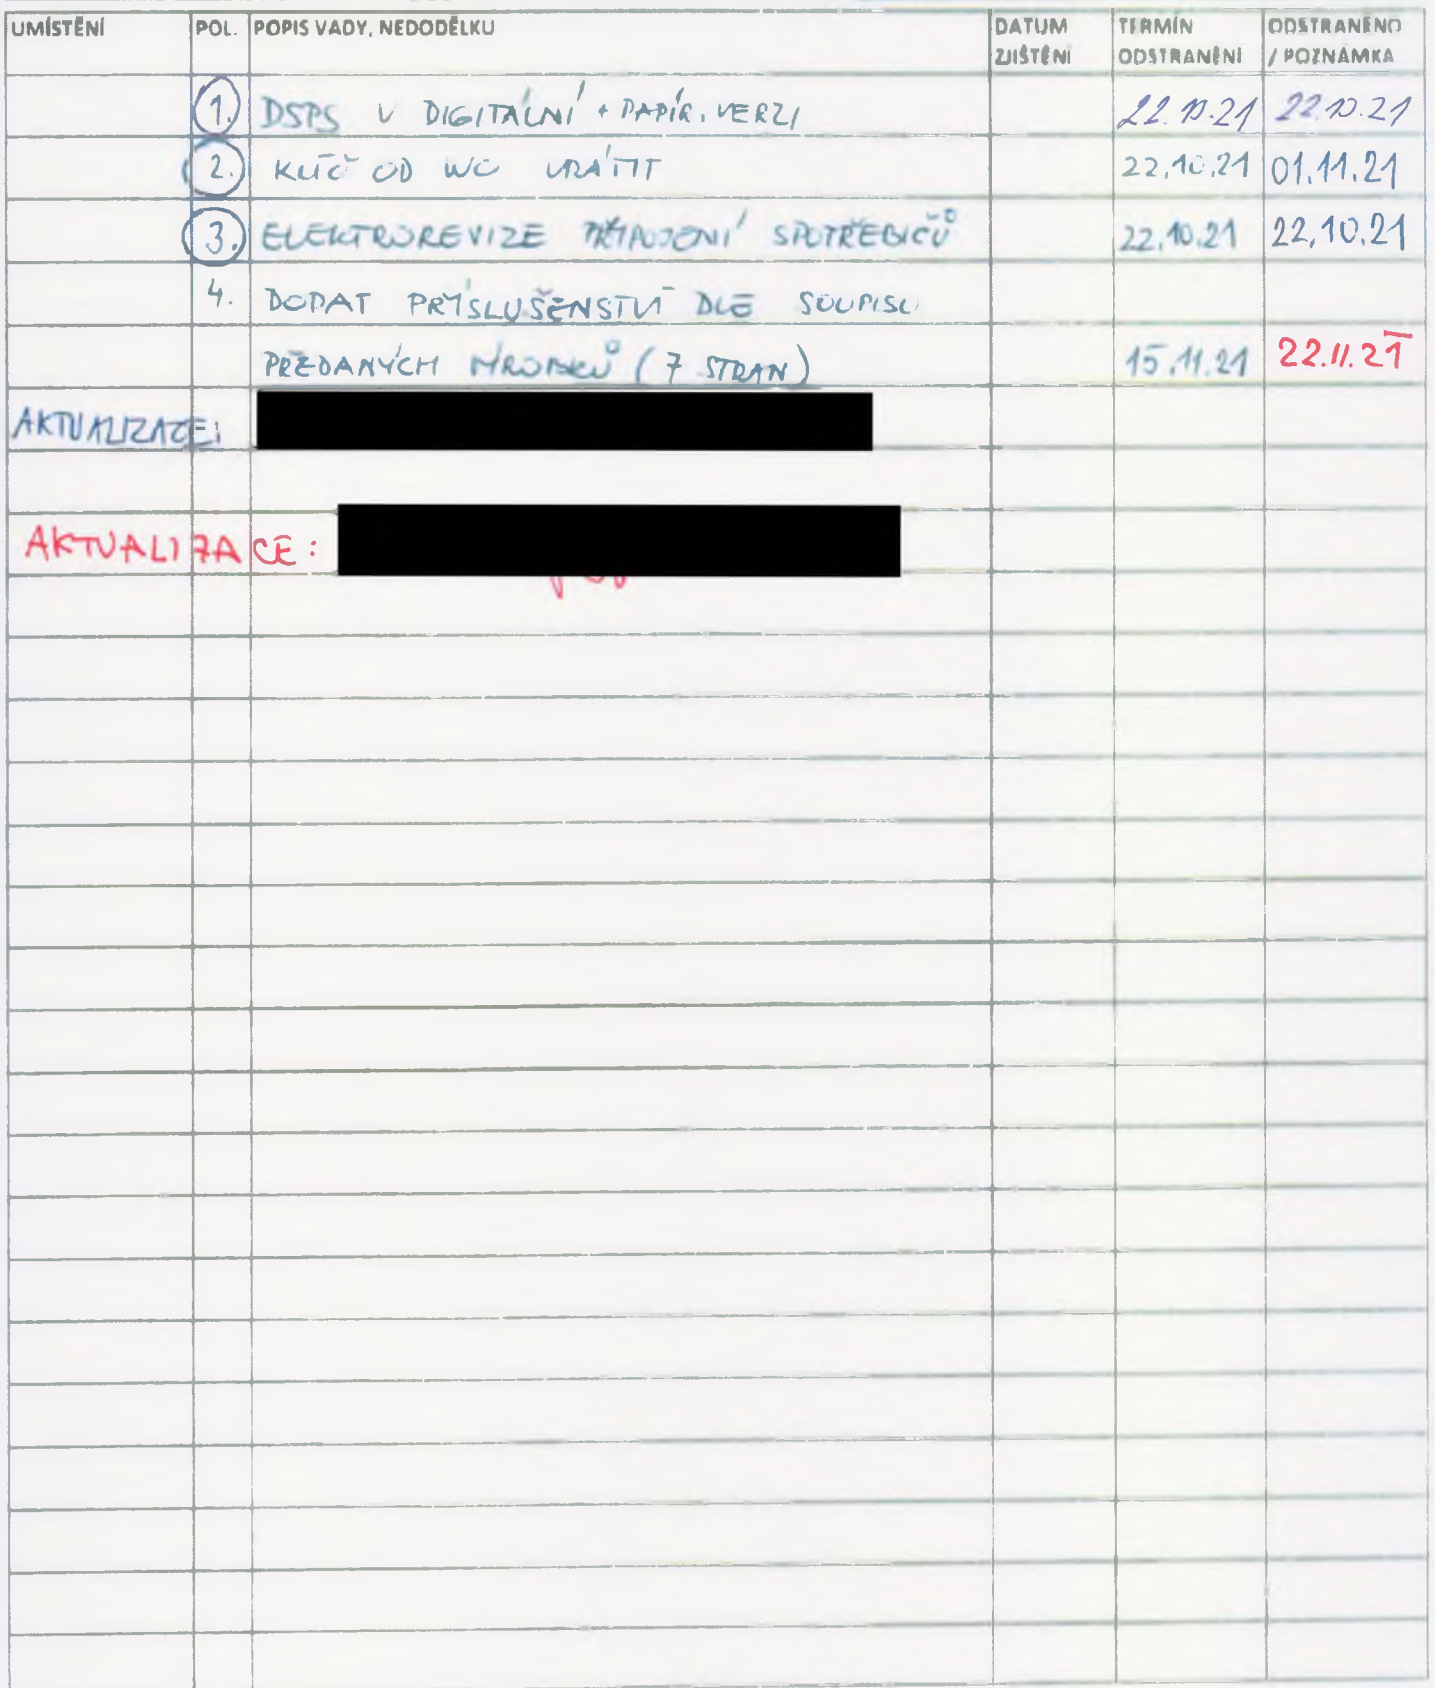 UMÍSTĚNÍ POL. POPIS VADY, NEDODĚLKU DATUM ZJIŠTĚNÍ TERMÍN ODSTRANĚNÍ ODSTRANĚNO / POZNÁMKA
1. DSPS V DIGITÁLNÍ + PAPÍR. VERZI 22.10.21 22.10.21
2. KLÍČ OD WC VRÁTIT 22.10.21 01.11.21
3. ELEKTROREVIZE PŘIPOJENÍ SPOTŘEBIČŮ 22.10.21 22.10.21
4. DODAT PŘÍSLUŠENSTVÍ DLE SOUPISU
PŘEDANÝCH VÝROBKŮ (7 STRAN) 15.11.21 22.11.21
AKTUALIZACE:
AKTUALIZACE: